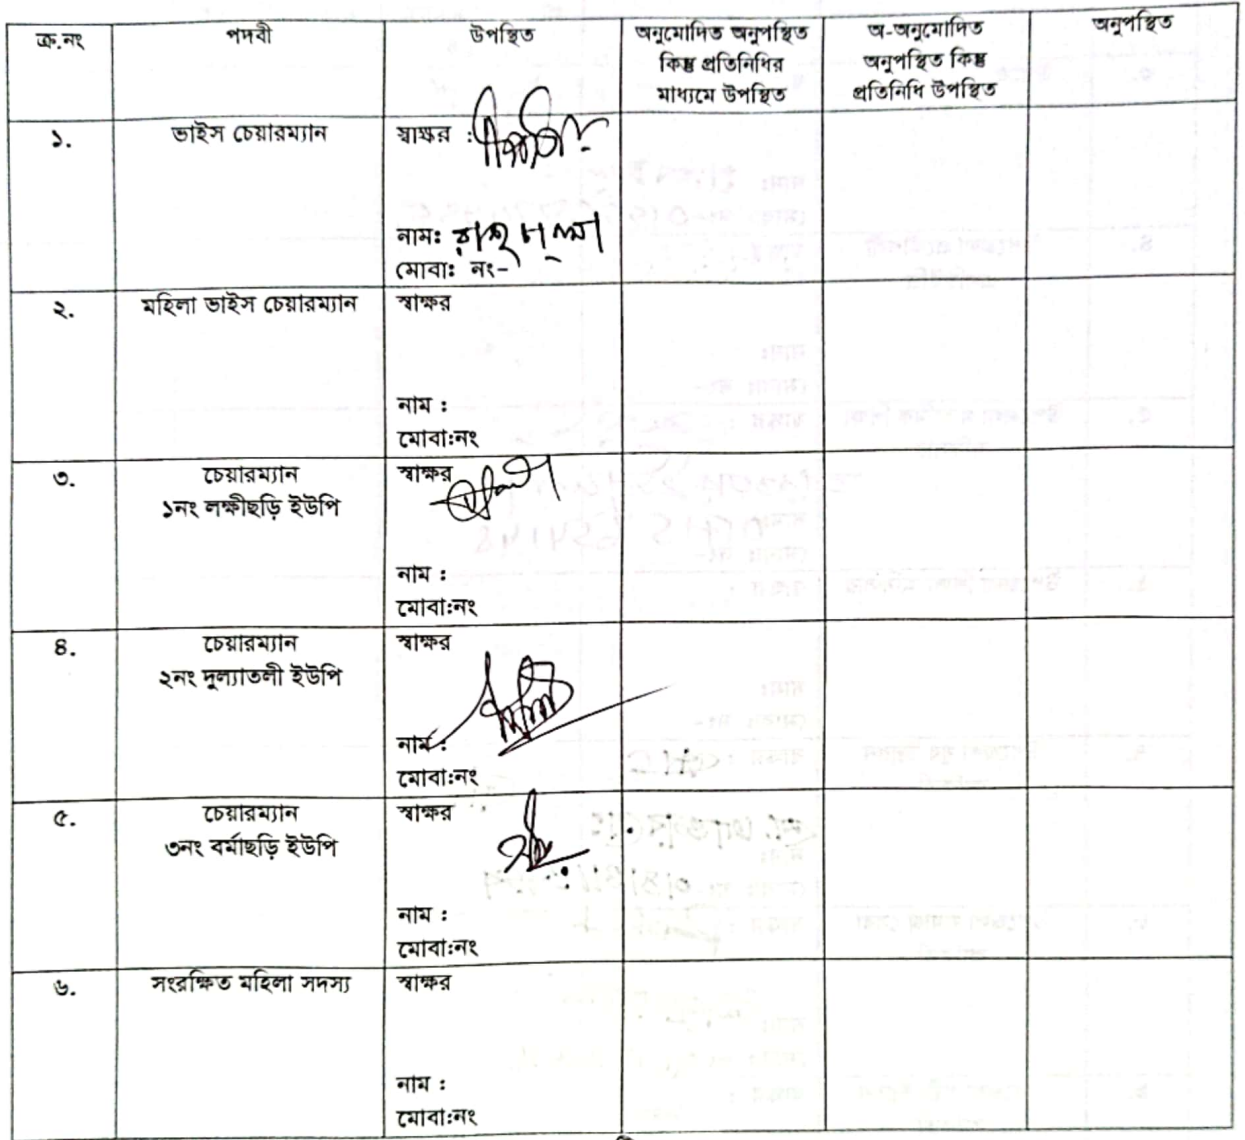 ক্র.নং পদবী উপস্থিত অনুমোদিত অনুপস্থিত কিন্তু প্রতিনিধির মাধ্যমে উপস্থিত অ-অনুমোদিত অনুপস্থিত কিন্তু প্রতিনিধি উপস্থিত অনুপস্থিত
১. ভাইস চেয়ারম্যান স্বাক্ষর :
নাম:
মোবা: নং-
২. মহিলা ভাইস চেয়ারম্যান স্বাক্ষর
নাম :
মোবা:নং
৩. চেয়ারম্যান স্বাক্ষর
১নং লক্ষীছড়ি ইউপি
নাম :
মোবা:নং
৪. চেয়ারম্যান স্বাক্ষর
২নং দুল্যাতলী ইউপি
নাম :
মোবা:নং
৫. চেয়ারম্যান স্বাক্ষর
৩নং বর্মাছড়ি ইউপি
নাম :
মোবা:নং
৬. সংরক্ষিত মহিলা সদস্য স্বাক্ষর
নাম :
মোবা:নং